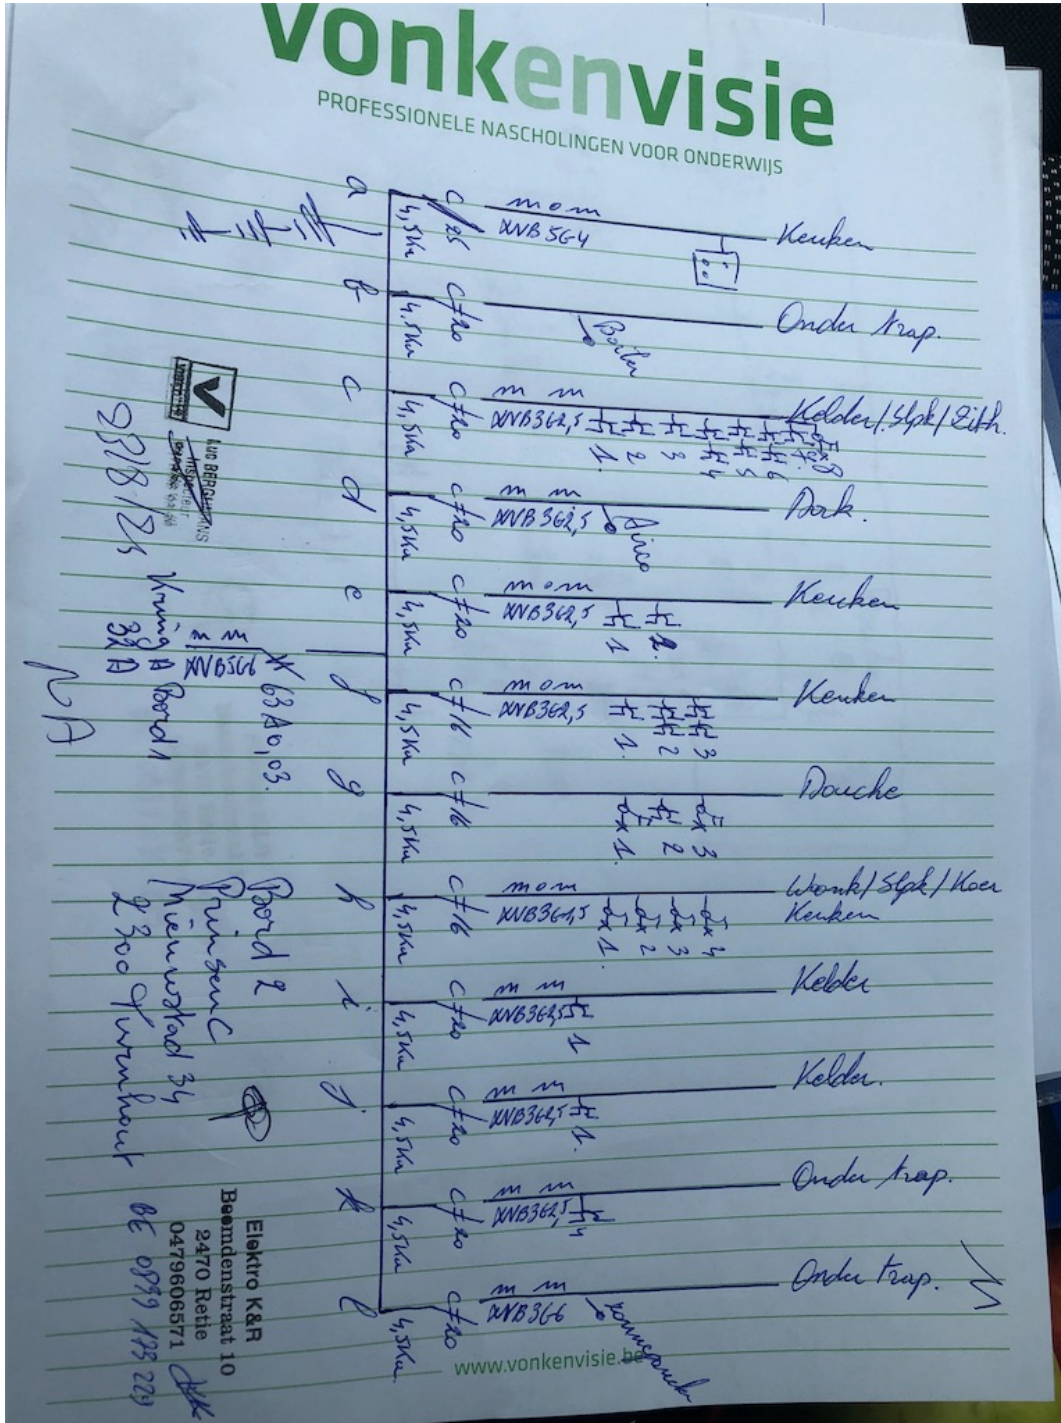 vonkenvisie
PROFESSIONELE NASCHOLINGEN VOOR ONDERWIJS
a 4,5Ka C/25 XVB 5G4 Keuken
b 4.5Ka C/20 Boiler Onder trap.
c 4,5Ka C/20 XVB3G2,5 1. 2 3 4 5 6 7 8 Kelder/Slpk/Zith.
d 4,5Ka C/20 XVB3G2,5 Airco
e 4,5Ka C/20 XVB3G2,5 1 2. Keuken
f 4,5Ka C/16 XVB3G2,5 1. 2 3 Keuken
g 4,5Ka C/16 1. 2 3 Douche
h 4,5Ka C/16 XVB3G1,5 1. 2 3 4 Woonk/Slpk/Koer
Keuken
i 4,5Ka C/20 XVB3G2,5 1 Kelder
j 4,5Ka C/20 XVB3G2,5 1. Kelder.
k 4,5Ka C/20 XVB3G2,5 4 Onder trap.
l 4,5Ka. C/20 XVB3G6 Onder trap.
63A 0,03.
XVB5G6
Kring A Bord 1
32A
LUC BERGHMANS
Inspecteur
Bord 2
Prinsen C
Nieuwstad 34
2300 Turnhout
Elektro K&R
Beemdenstraat 10
2470 Retie
0479606571
BE 0899 123 229
www.vonkenvisie.be